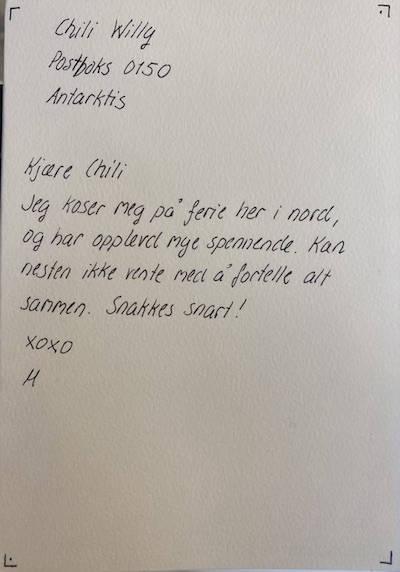 Chili Willy
Postboks 0150
Antarktis
Kjære Chili
Jeg koser meg på ferie her i nord,
og har opplevd mye spennende. Kan
nesten ikke vente med å fortelle alt
sammen. Snakkes snart!
XOXO
M